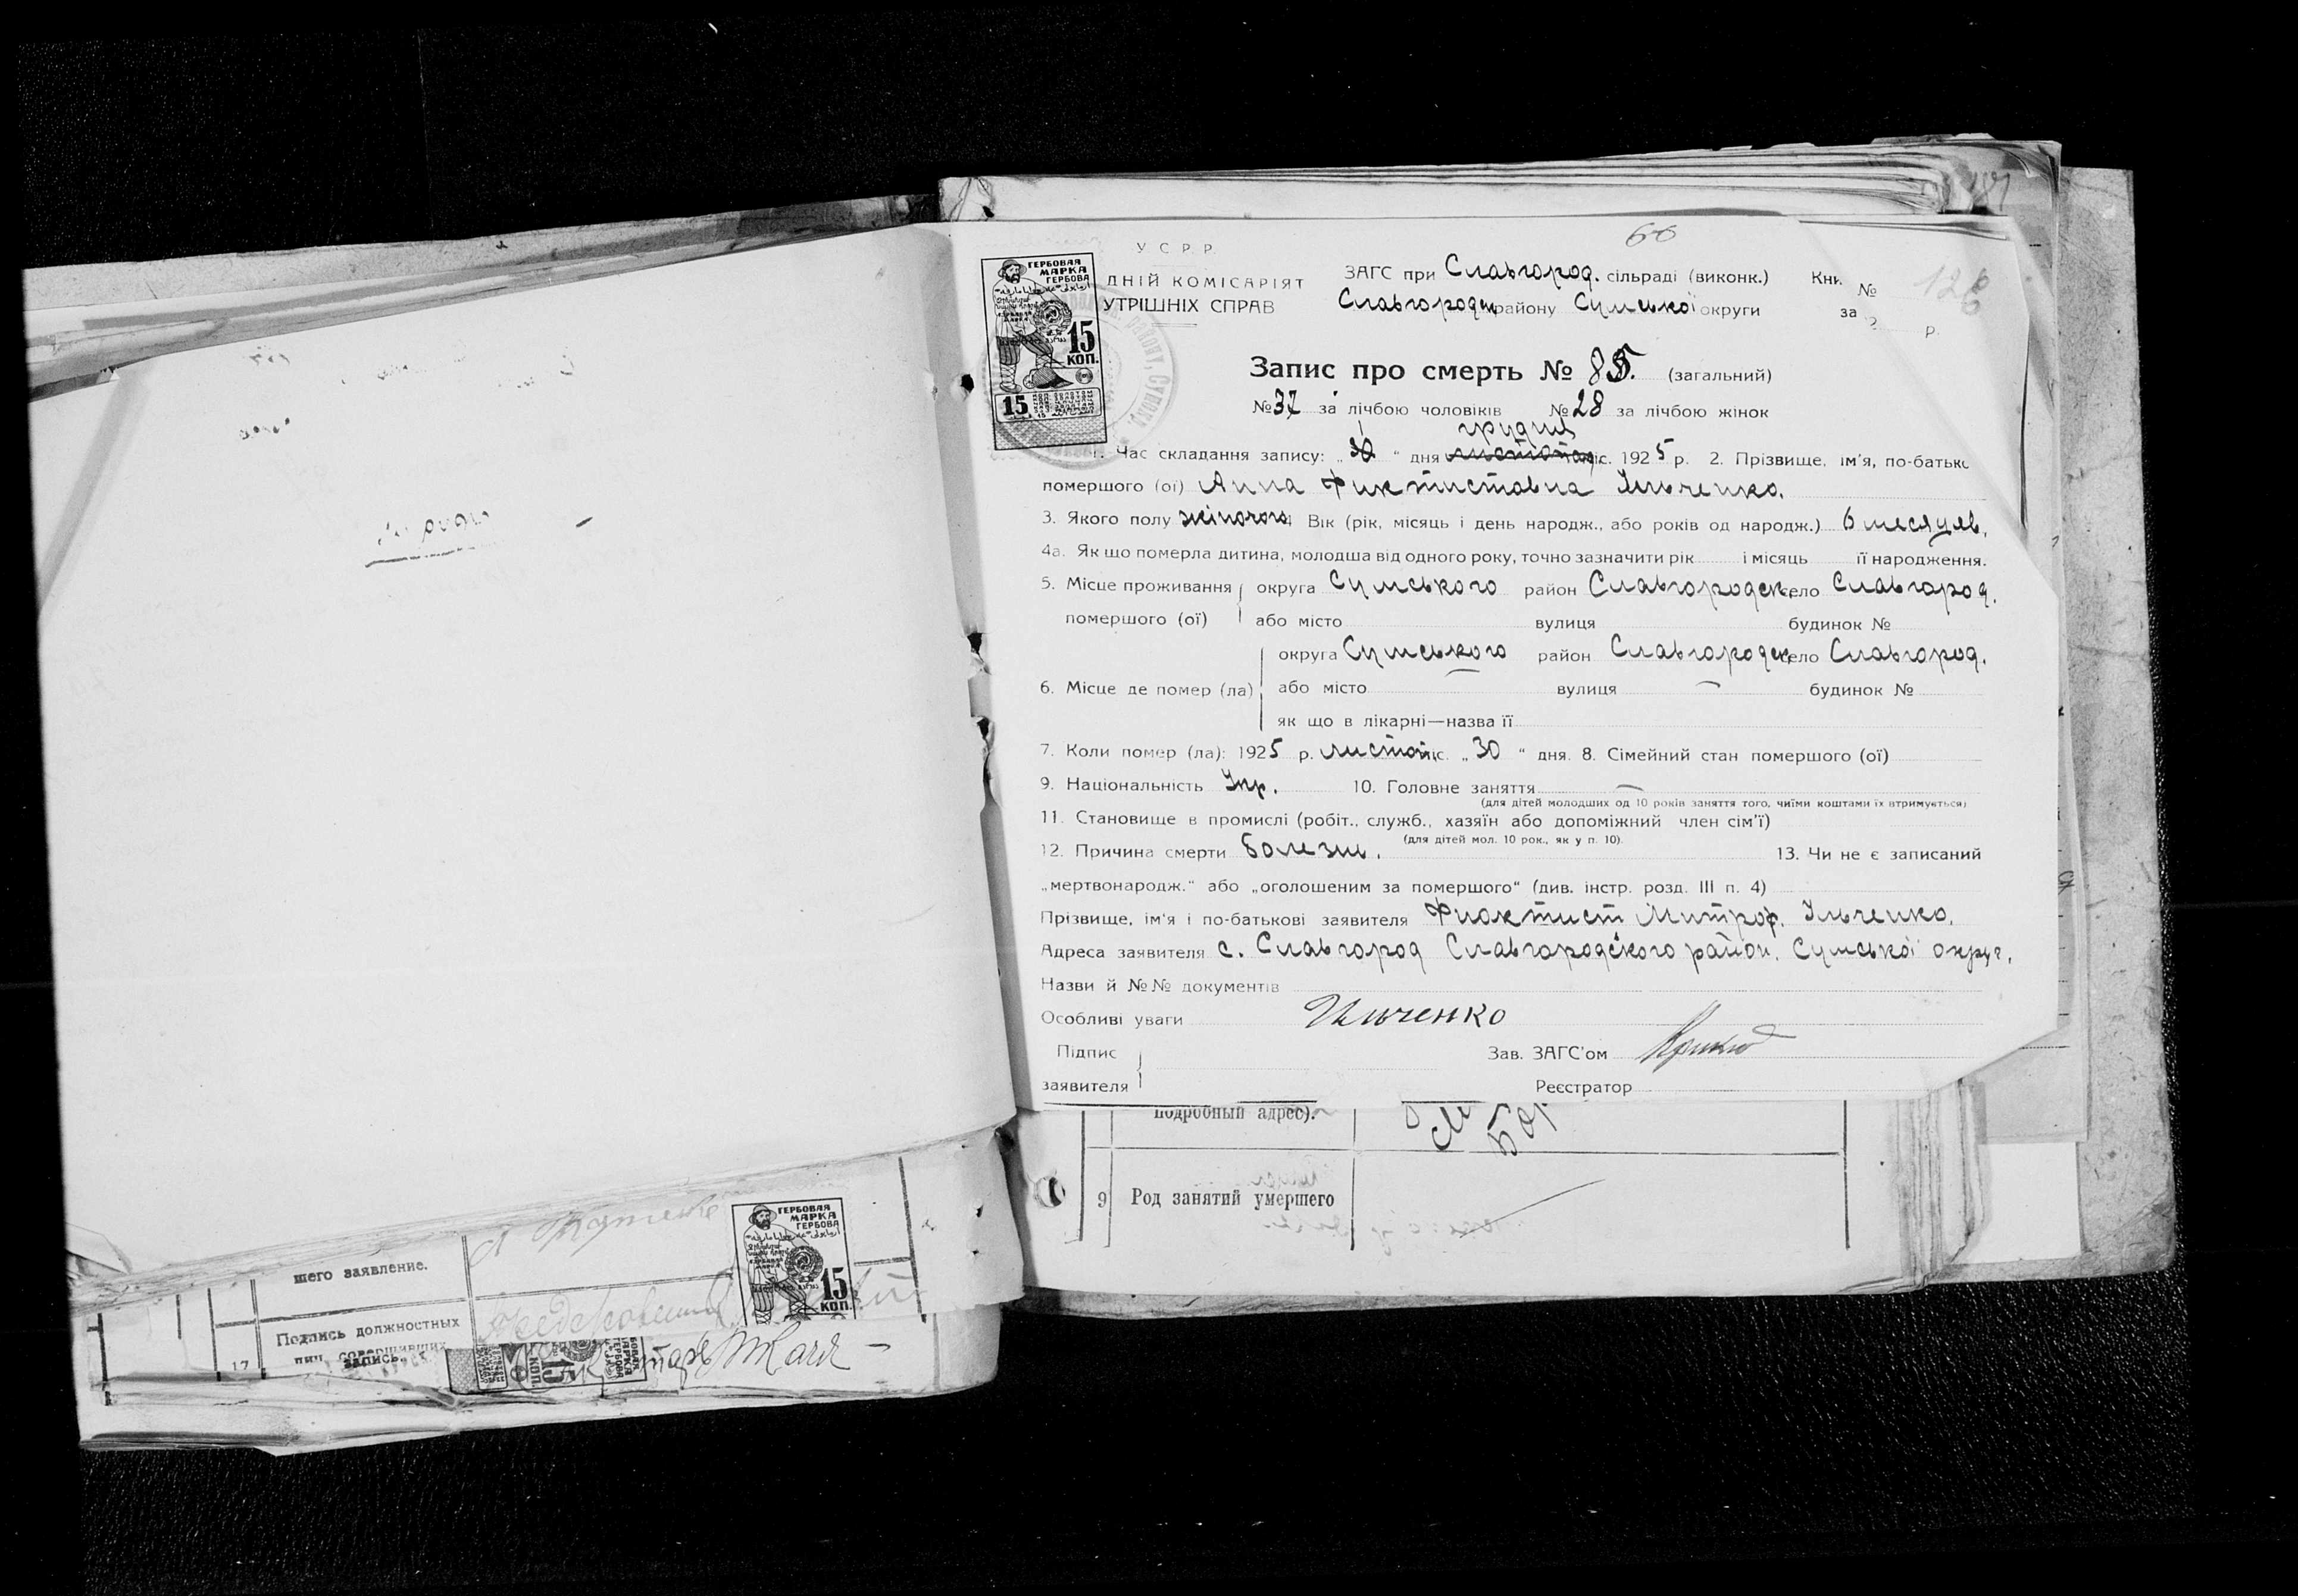 60
126
У С Р Р
ДНІЙ КОМІСАРІЯТ
УТРІШНІХ СПРАВ
ЗАГС при Славгород. сільраді (виконк.)
Славгородск району Сумської округи
Кни. №
за р.
ГЕРБОВАЯ
МАРКА
ГЕРБОВА
15
КОП.
15
Запис про смерть № 85. (загальний)
№ 37 за лічбою чоловіків № 28 за лічбою жінок
грудня
1. Час складання запису: „ “ дня міс. 1925 р. 2. Прізвище, ім'я, по-батьк
помершого (ої) Анна Фиктистовна Ильченко.
3. Якого полу жіночого; Вік (рік, місяць і день народж., або років од народж.) 6 месяцев.
4а. Як що померла дитина, молодша від одного року, точно зазначити рік і місяць її народження.
5. Місце проживання округа Сумського район Славгородск село Славгород.
помершого (ої) або місто вулиця будинок №
округа Сумського район Славгородск село Славгород.
6. Місце де помер (ла) або місто — вулиця — будинок №
як що в лікарні—назва її
7. Коли помер (ла): 1925 р. листоп міс. „30“ дня. 8. Сімейний стан помершого (ої)
9. Національність Укр. 10. Головне заняття —
(для дітей молодших од 10 років заняття того, чиїми коштами їх втримується)
11. Становище в промислі (робіт., служб., хазяїн або допоміжний член сім'ї)
(для дітей мол. 10 рок., як у п. 10).
12. Причина смерти Болезни. 13. Чи не є записаний
„мертвонародж.“ або „оголошеним за помершого“ (див. інстр. розд. III п. 4)
Прізвище, ім'я і по-батькові заявителя Фиоктист Митроф. Ильченко.
Адреса заявителя с. Славгород Славгородського район. Сумської округ.
Назви й №№ документів
Особливі уваги Ильченко
Підпис
заявителя
Зав. ЗАГС'ом
Реєстратор
подробный адрес).
9 Род занятий умершего
шего заявление.
17 Подпись должностных
лиц, совершивших
запись.
ГЕРБОВАЯ
МАРКА
ГЕРБОВА
15
КОП.